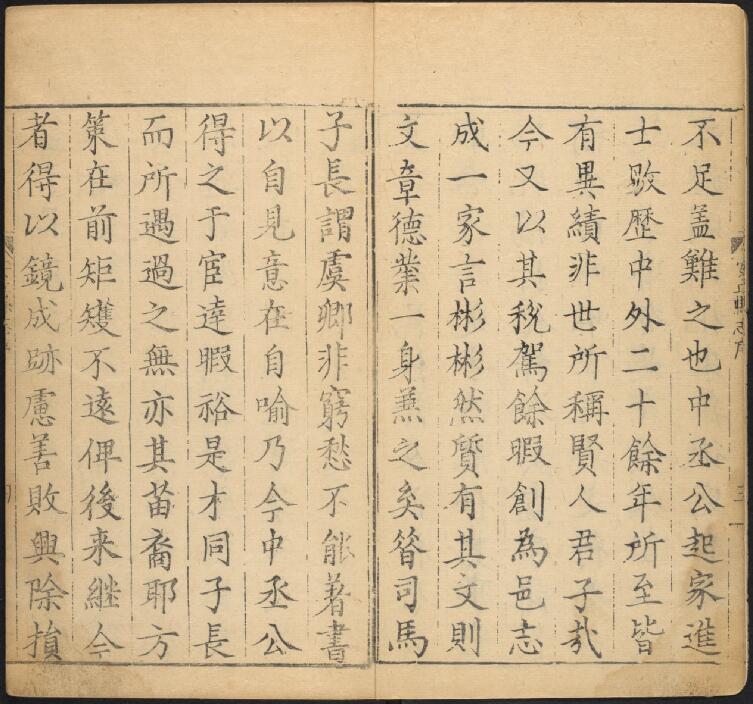 不足盖難之也中丞公起家進
士敭歷中外二十餘年所至皆
有異績非世所稱賢人君子哉
今又以其稅駕餘暇創為邑志
成一家言彬彬然質有其文則
文章德業一身兼之矣昝司馬
子長謂虞卿非窮愁不能著書
以自見意在自喻乃今中丞公
得之于宦逹暇裕是才同子長
而所遇過之無亦其苗裔耶方
筞在前矩矱不遠俾後来継今
者得以鏡成跡慮善敗興除損